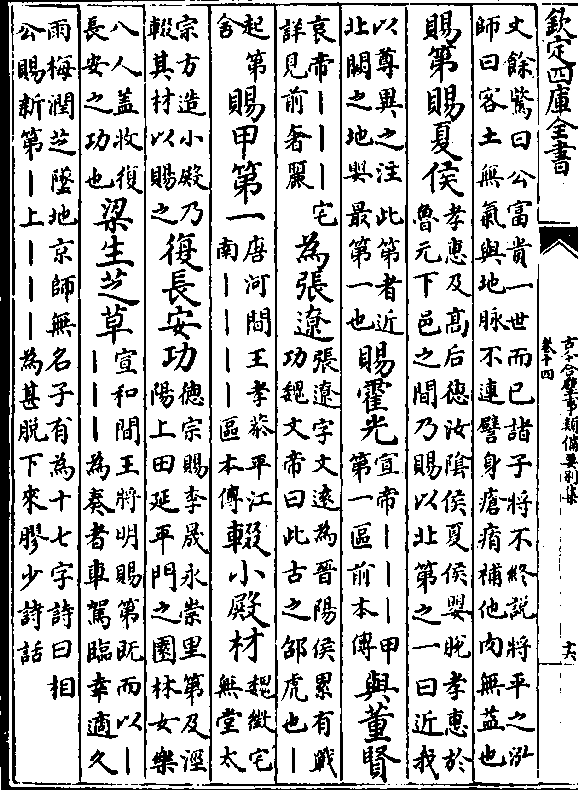 欽定四庫全書
古今合璧事類備要別集
卷十四
十六
丈餘驚曰公富貴一世而已諸子將不終説將平之泓
師曰客土無氣與地脉不連譬身瘡痏補他肉無益也
賜第賜夏侯
孝惠及高后徳汝隂侯夏侯嬰脱孝惠於
魯元下邑之間乃賜以北第之一曰近我
以尊異之注此第者近
北闕之地與最第一也
賜霍光
宣帝丨丨丨甲
第一區前本傳
與董賢
哀帝丨丨丨宅
詳見前奢麗
為張遼
張遼字文逺為晉陽侯累有戰
功魏文帝曰此古之邵虎也丨
起第
舍
賜甲第一
唐河間王孝恭平江
南丨丨丨丨區本傳
輟小殿材
魏徴宅
無堂太
宗方造小殿乃
輟其材以賜之
復長安功
徳宗賜李晟永崇里第及涇
陽上田延平門之園林女樂
八人蓋收復
長安之功也
梁生芝草
宣和間王將明賜第既而以丨
丨丨丨為奏者車駕臨幸適久
雨梅潤芝墜地京師無名子有為十七字詩曰相
公賜新第丨上丨丨丨為甚脱下來膠少詩話